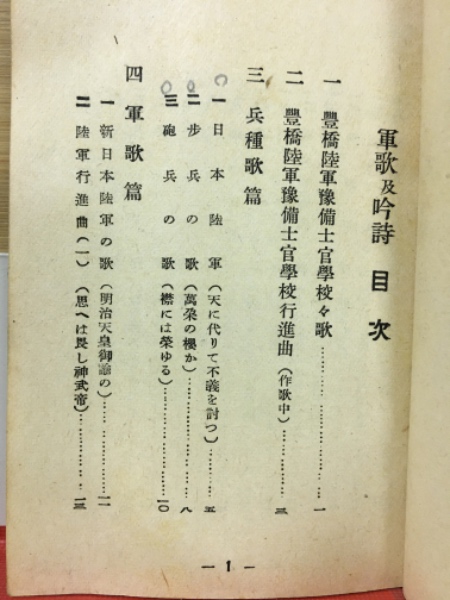 軍歌及吟詩 目次
一 豐橋陸軍豫備士官學校々歌……………一
二 豐橋陸軍豫備士官學校行進曲(作歌中)………三
三 兵種歌篇
一 日本陸軍(天に代りて不義を討つ)………五
二 步兵の歌(萬朶の櫻か)……………八
三 砲兵の歌(襟には榮ゆる)……………一〇
四 軍歌篇
一 新日本陸軍の歌(明治天皇御詔の)………一一
二 陸軍行進曲(一)(思へは畏し神武帝)………一三
— 1 —